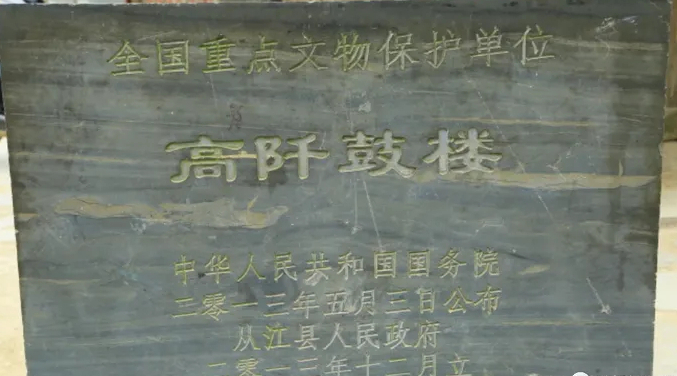 全国重点文物保护单位
高阡鼓楼
中华人民共和国国务院
二零一三年五月三日公布
从江县人民政府
二零一三年十二月立